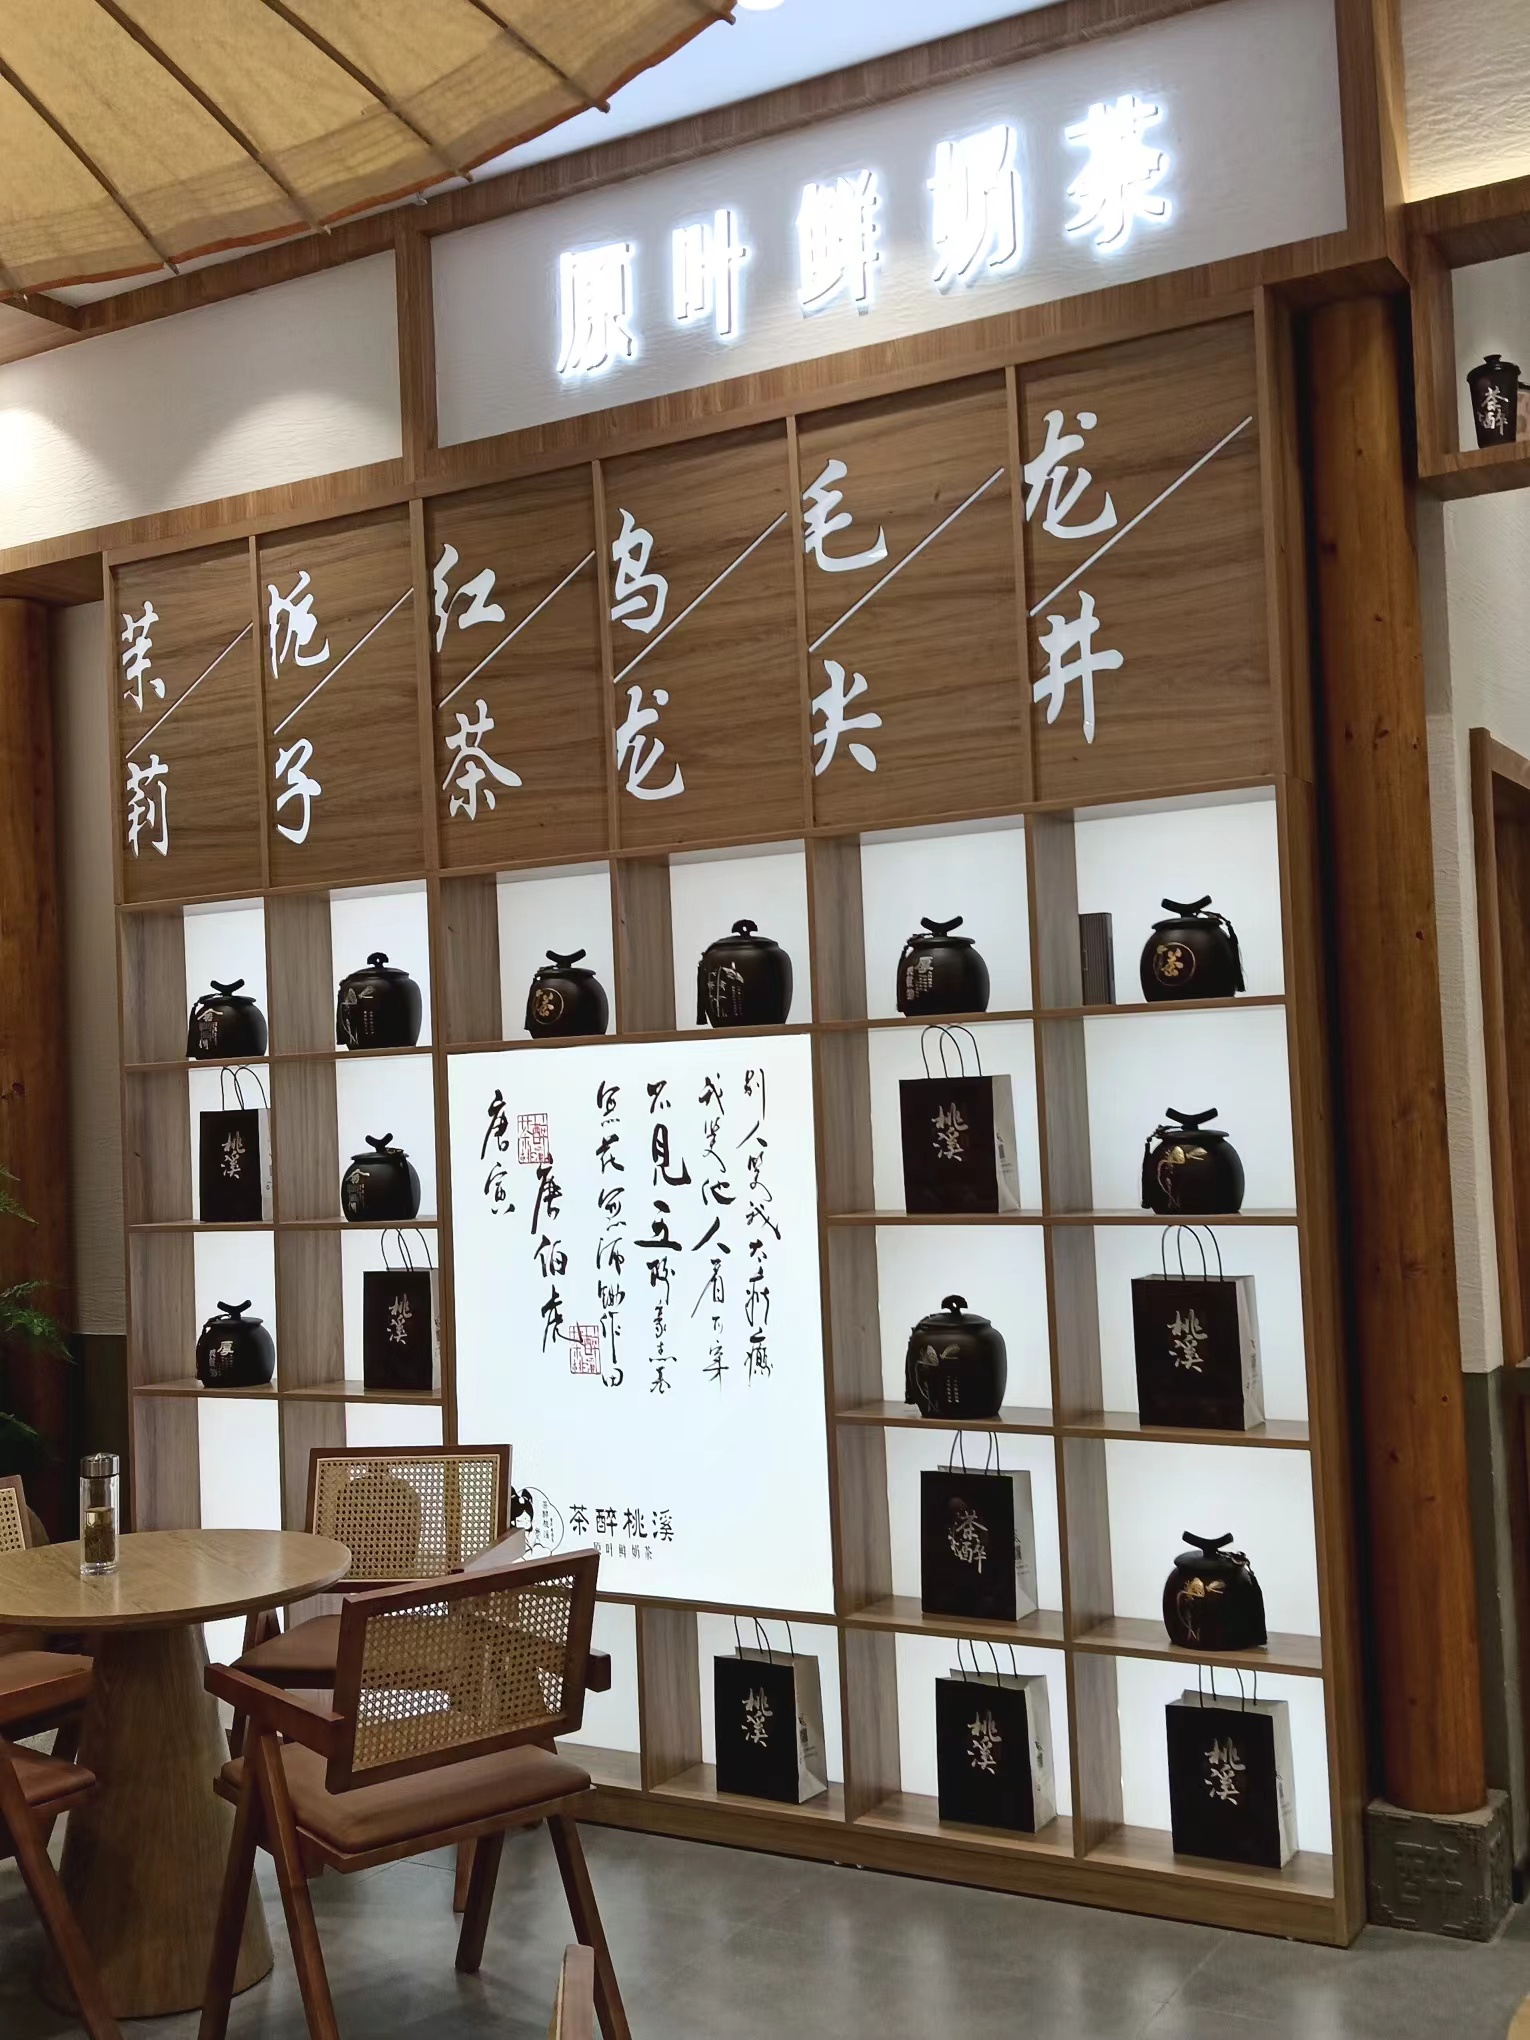 原叶鲜奶茶
茉莉
栀子
红茶
乌龙
毛尖
龙井
别人笑我太疯癫
我笑他人看不穿
不见五陵豪杰墓
无花无酒锄作田
唐伯虎
唐寅
茶醉桃溪
原叶鲜奶茶
茶醉
茶
厚
茶
厚
桃溪
桃溪
桃溪
桃溪
茶醉
桃溪
桃溪
桃溪